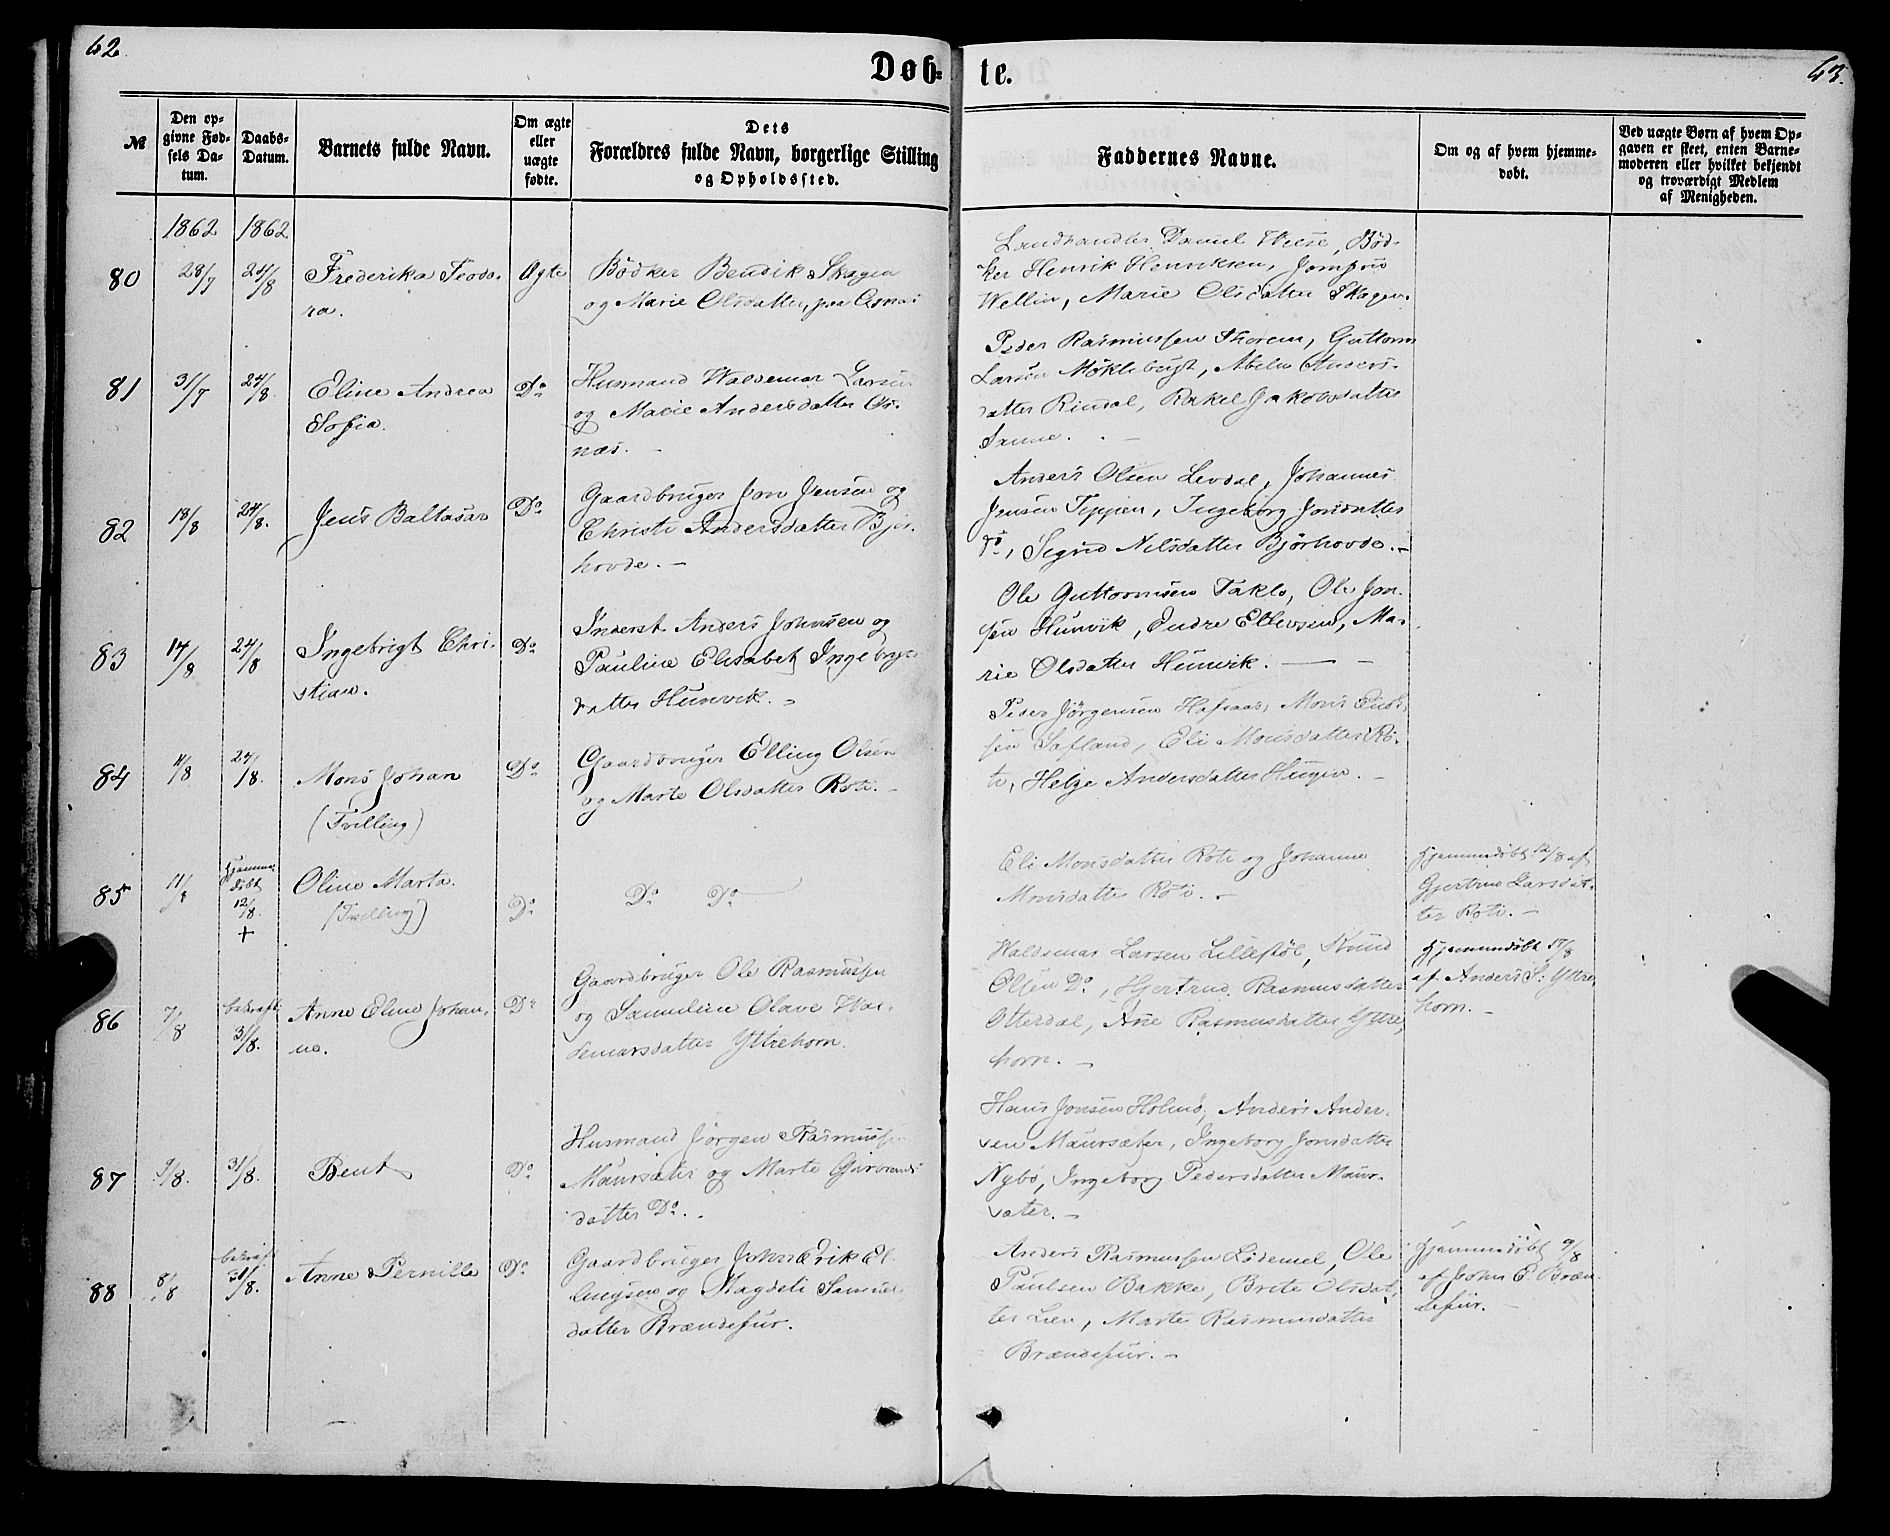 62.
63.
Døb-
te.
№
Den op-
givne Fød-
sels Da-
tum.
Daabs-
Datum.
Barnets fulde Navn.
Om ægte
eller
uægte
fødte.
Dets
Forældres fulde Navn, borgerlige Stilling
og Opholdssted.
Faddernes Navne.
Om og af hvem hjemme-
døbt.
Ved uægte Børn af hvem Op-
gaven er skeet, enten Barne-
moderen eller hvilket bekjendt
og troværdigt Medlem
af Menigheden.
1862 1862
80
28/7
24/8
Frederika Teodo-
ra.
Ægte
Bödker Bendik Skagen
og Marie Olsdatter, paa Osnæs
Landhandler Daniel Wiese, Bød-
ker Henrik Henriksen, Jomfru
Wellin, Marie Olsdatter Skagen.
81
31/7
24/8.
Eline Andrea
Sofia.
Do
Husmand Waldemar Larsen
og Marie Andersdatter Os-
næs.
Peder Rasmussen Thorem, Guttorm
Larsen Möklebust, Abelu Anders-
datter Rindal, Rakel Jakobsdatter
Sanne.
82
18/8
24/8.
Jens Baltasar
Do
Gaardbruger Jon Jensen og
Christi Andersdatter Bjør-
hovde.
Anders Olsen Levdal, Johannes
Jensen Teppen, Ingeborg Jonsdatter
Do, Sigrid Nilsdatter Bjørhovde.
83
14/8
24/8
Ingebrigt Chri-
stian.
Do
Inderst Anders Johnsen og
Pauline Elisabet Ingebrigts
datter Hunvik.
Ole Guttormsen Taklo, Ole Jon-
sen Hunvik, Endre Ellevsen, Ma-
rie Olsdatter Hunvik.
84
11/8
24/8.
Mons Johan
(Tvilling)
Do
Gaardbruger Elling Olsen
og Marte Olsdatter Roti.
Peder Jörgensen Hafsaas, Mons
sen Lofland, Eli Monsdatter Ro-
ti, Helge Andersdatter Haugen.
85
11/8
Hjemme
döbt
12/8.
+
Oline Marta.
(Tvilling)
Do
Do Do
Eli Monsdatter Roti og Johanne
Monsdatter Roti.
Hjemmedöbt 12/8 af
Gjertrud Larsdat-
ter Roti.
86
7/8
bekræft.
31/8.
Anne Eline Johan-
ne.
Do
Gaardbruger Ole Rasmussen
og Samuline Olave Wal-
demarsdatter Yttrehorn.
Waldemar Larsen Lillestøl, Knud
Olsen Do, Hjertrud Rasmusdatter
Otterdal, Ane Rasmusdatter Yttre-
horn.
Hjemmedöbt 17/8
af Anders S. Yttre
horn.
87
9/8.
31/8.
Bent
Do
Husmand Jörgen Rasmussen
Maursæter og Marte Guvrands
datter Do.
Hans Jonsen Holmö, Anders Ander-
sen Maursæter, Ingeborg Jonsdatter
Nybø, Ingeborg Pedersdatter Maur-
sæter.
88
8/8
bekræft
31/8.
Anne Pernille
Do
Gaardbruger John Erik El-
lingsen og Magdeli Samuel-
datter Brændefur.
Anders Rasmussen Lødemel, Ole
Paulsen Bakke, Brite Olsdat-
ter Lien, Marte Rasmusdatter
Brændefur.
Hjemmedöbt 9/8
af John E. Bræn-
defur.